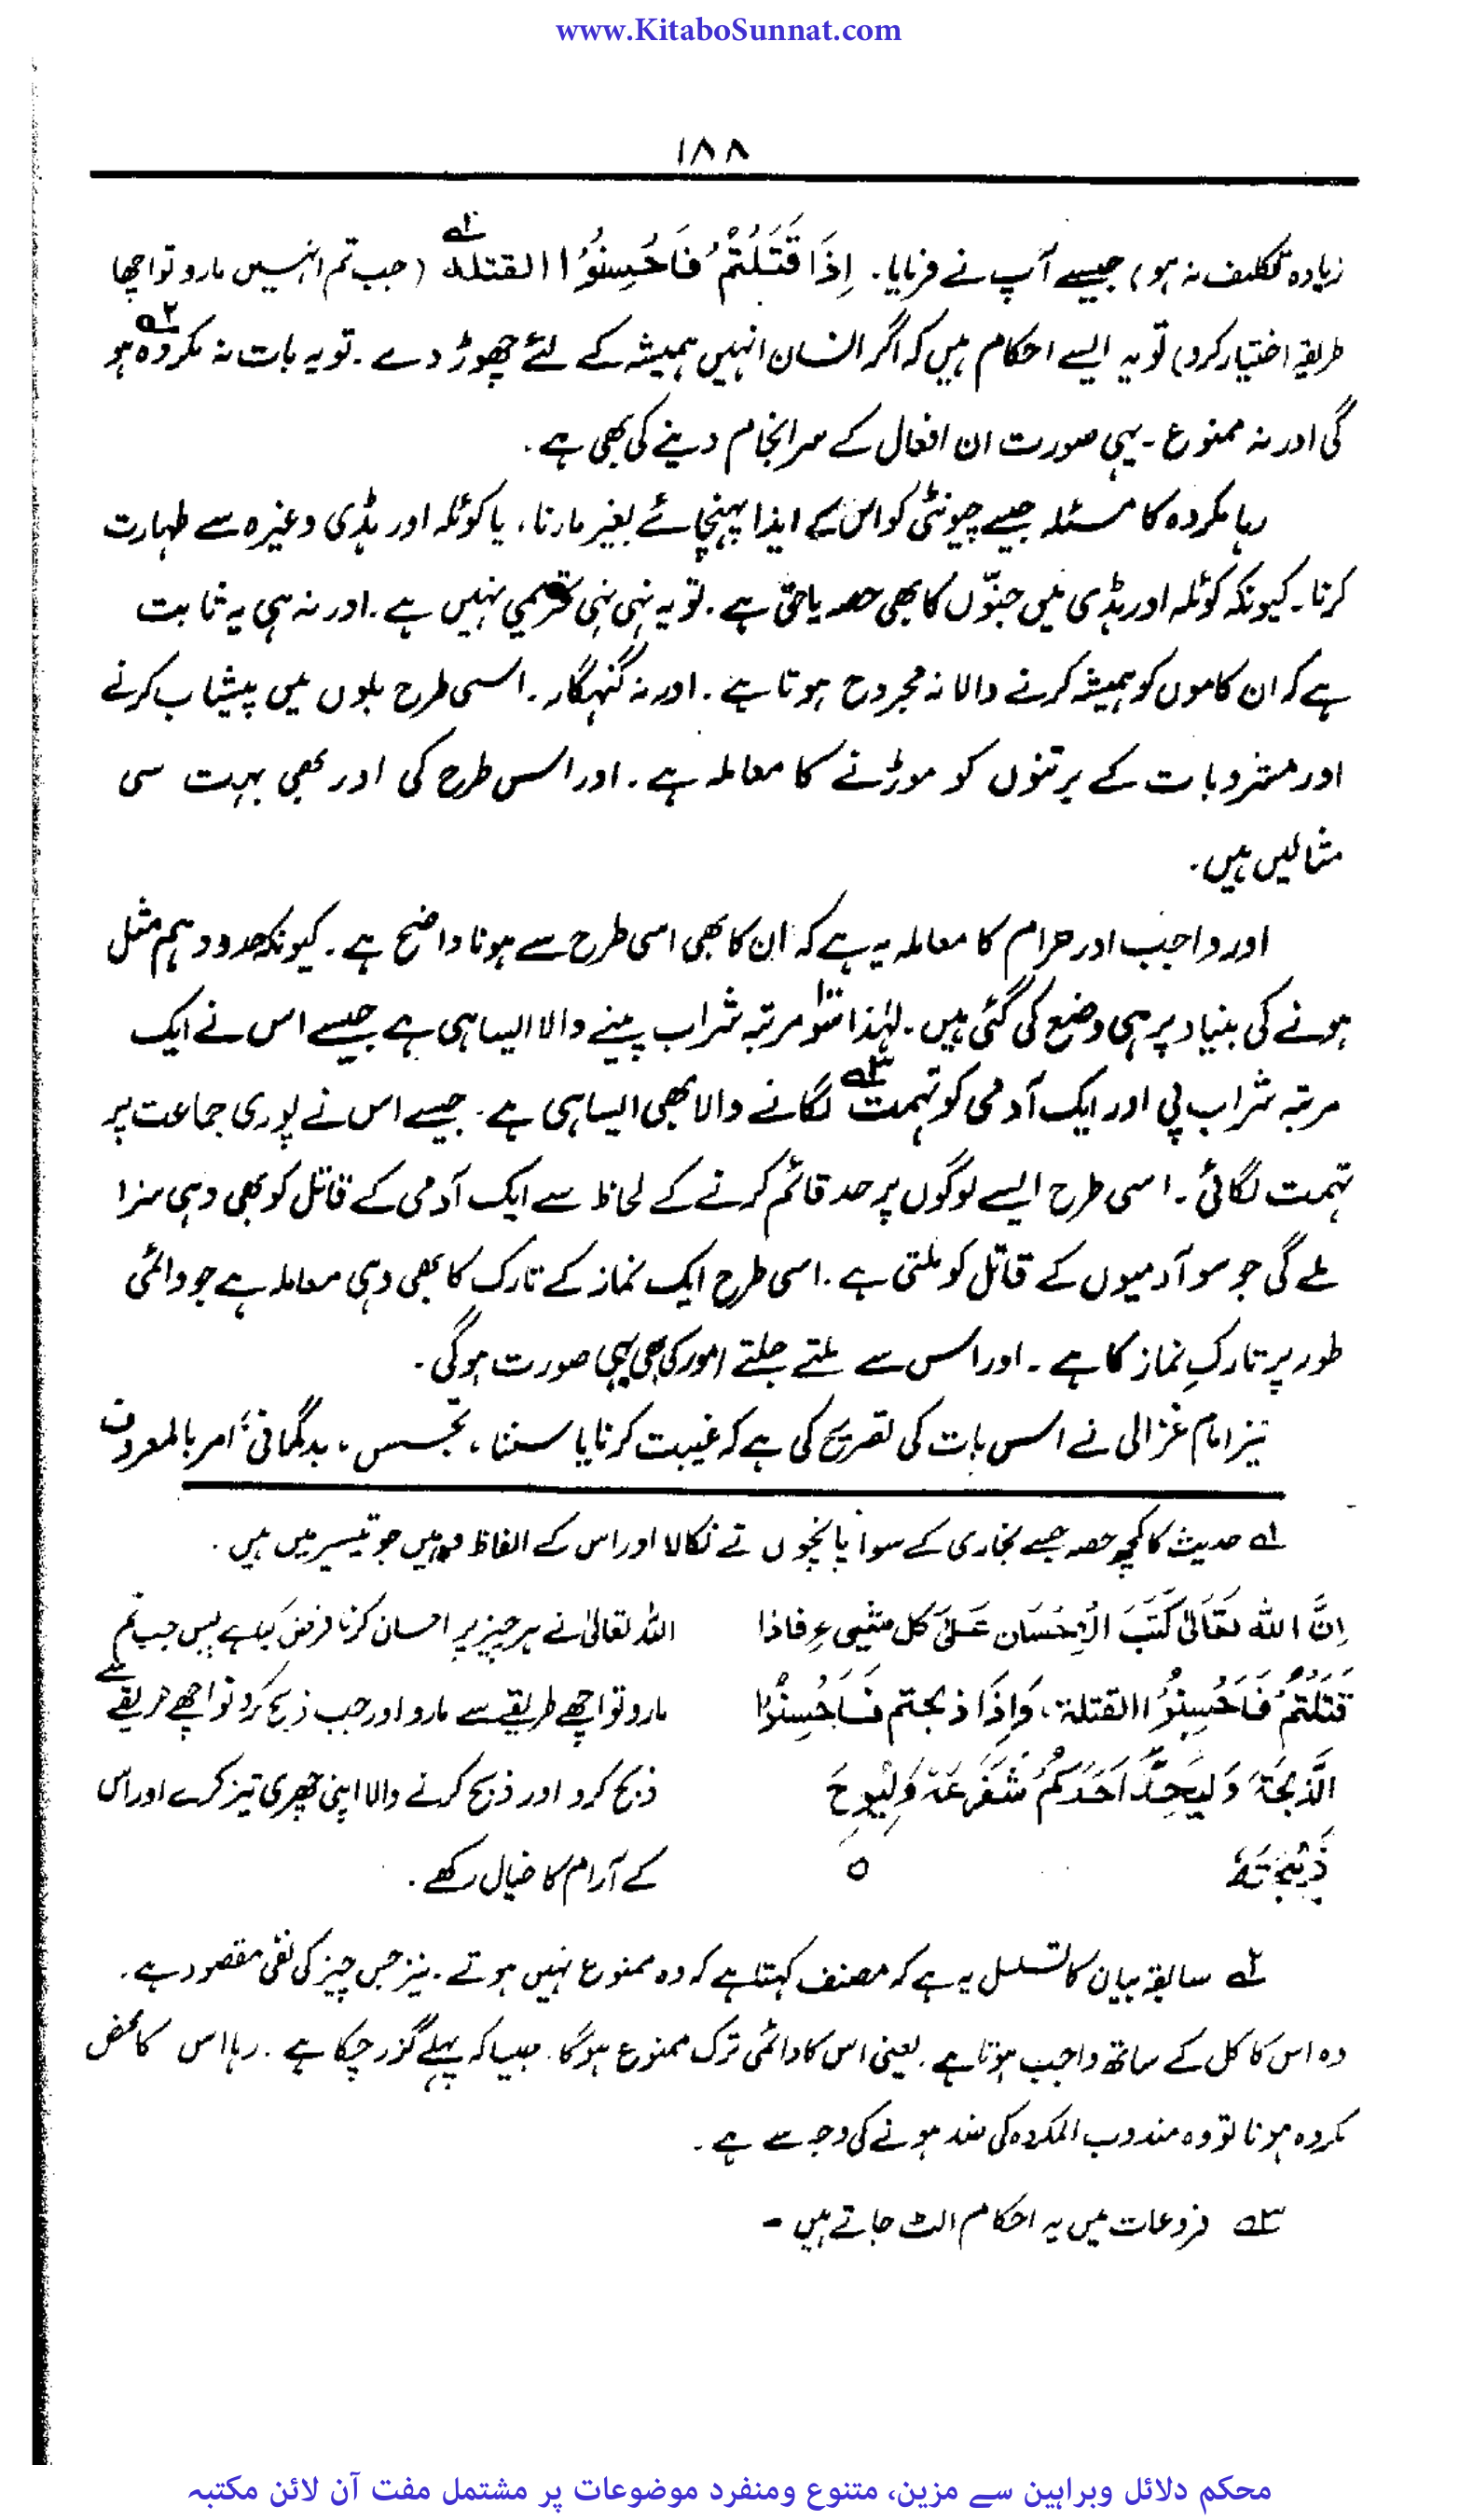 www.KitaboSunnat.com
۱۸۸
زیادہ تکلیف نہ ہو) جیسے آپ نے فرمایا۔ اِذَا قَتَلْتُمْ فَاَحْسِنُوْا القتلة ؎۱ (جب تم انہیں مارو تو اچھا
طریقہ اختیار کرو) تو یہ ایسے احکام ہیں کہ اگر انسان انہیں ہمیشہ کے لئے چھوڑ دے۔ تو یہ بات نہ مکروہ ؎۲ ہو
گی اور نہ ممنوع۔ یہی صورت ان افعال کے سرانجام دینے کی بھی ہے۔
رہا مکروہ کا مسئلہ جیسے چیونٹی کو اس کے ایذا پہنچائے بغیر مارنا، یا کوئلہ اور ہڈی وغیرہ سے طہارت
کرنا۔ کیونکہ کوئلہ اور ہڈی میں جنّوں کا بھی حصہ یا حق ہے۔ تو یہ نہی نہی تحریمی نہیں ہے۔ اور نہ ہی یہ ثابت
ہے کہ ان کاموں کو ہمیشہ کرنے والا نہ مجروح ہوتا ہے۔ اور نہ گنہگار۔ اسی طرح بلوں میں پیشاب کرنے
اور مشروبات کے برتنوں کو موڑنے کا معاملہ ہے۔ اور اس طرح کی اور بھی بہت سی
مثالیں ہیں۔
اور واجب اور حرام کا معاملہ یہ ہے کہ ان کا بھی اسی طرح سے ہونا واضح ہے۔ کیونکہ حدود ہم مثل
ہونے کی بنیاد پر ہی وضع کی گئی ہیں۔ لہٰذا سو مرتبہ شراب پینے والا ایسا ہی ہے جیسے اس نے ایک
مرتبہ شراب پی اور ایک آدمی کو تہمت ؎۳ لگانے والا بھی ایسا ہی ہے۔ جیسے اس نے پوری جماعت پر
تہمت لگائی۔ اسی طرح ایسے لوگوں پر حد قائم کرنے کے لحاظ سے ایک آدمی کے قاتل کو بھی وہی سزا
ملے گی جو سو آدمیوں کے قاتل کو ملتی ہے۔ اسی طرح ایک نماز کے تارک کا بھی وہی معاملہ ہے جو دائمی
طور پر تارکِ نماز کا ہے۔ اور اس سے ملتے جلتے امور کی بھی یہی صورت ہوگی۔
نیز امام غزالی نے اس بات کی تصریح کی ہے کہ غیبت کرنا یا سننا، تجسس، بدگمانی، امر بالمعروف
؎۱ حدیث کا کچھ حصہ جسے بخاری کے سوا پانچوں نے نکالا اور اس کے الفاظ وہ ہیں جو تیسیر میں ہیں۔
اِنَّ اللہ تَعَالیٰ کَتَبَ الْاِحْسَان عَلیٰ کل شیىءٍ فاذا اللہ تعالیٰ نے ہر چیز پر احسان کرنا فرض کیا ہے پس جب تم
قَتَلْتُمْ فَاَحْسِنُوْا القتلة، وَاِذَا ذبحتم فَاَحْسِنُوْا مارو تو اچھے طریقے سے مارو اور جب ذبح کرو تو اچھے طریقے سے
الذَّبْحَۃَ وَلْیَحِدَّ اَحَدَکُمْ شَفْرَتَہٗ وَلْیُرِحَ ذبح کرو اور ذبح کرنے والا اپنی چھری تیز کرے اور اس
ذَبِیْحَتَہٗ ہ کے آرام کا خیال رکھے۔
؎۲ سابقہ بیان کا تسلسل یہ ہے کہ مصنف کہتا ہے کہ وہ ممنوع نہیں ہوتے۔ نیز جس چیز کی نفی مقصود ہے۔
وہ اس کا کل کے ساتھ واجب ہوتا ہے۔ یعنی اس کا دائمی ترک ممنوع ہوگا۔ جیسا کہ پہلے گزر چکا ہے۔ رہا اس کا محض
مکروہ ہونا تو وہ مندوب المکروہ کی ضد ہونے کی وجہ سے ہے۔
؎۳ فروعات میں یہ احکام الٹ جاتے ہیں۔
محکم دلائل وبراہین سے مزین، متنوع ومنفرد موضوعات پر مشتمل مفت آن لائن مکتبہ